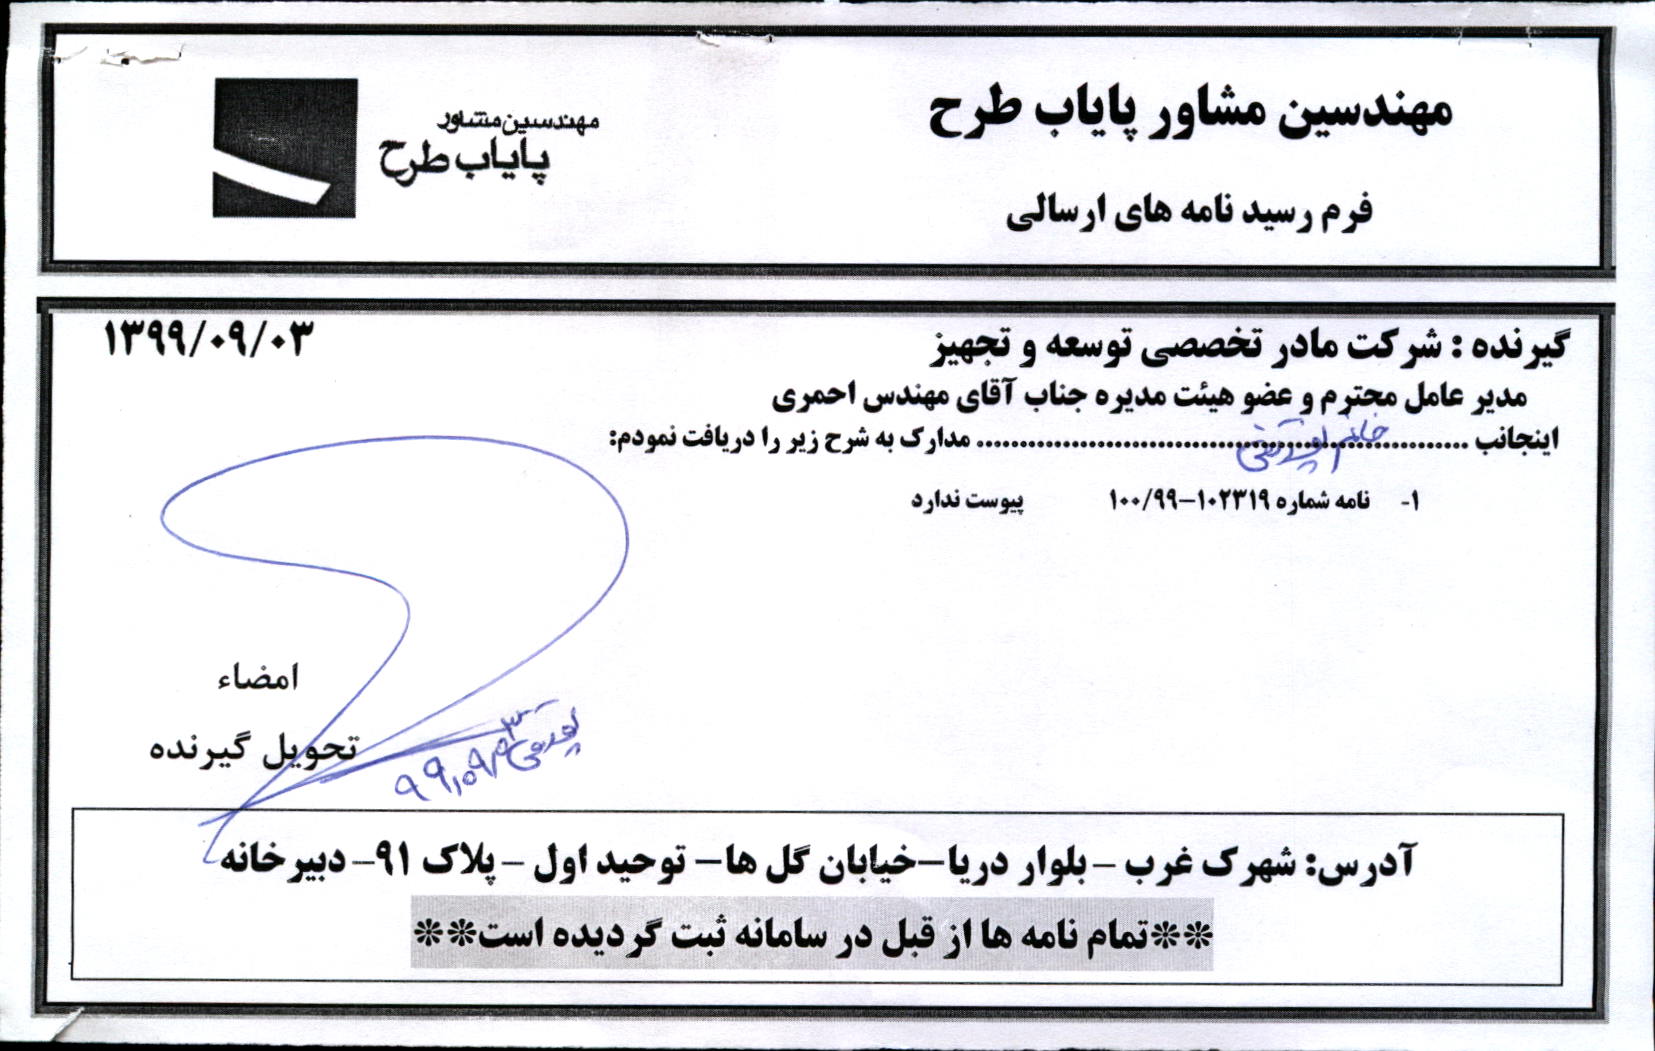 مهندسین مشاور پایاب طرح
مهندسین مشاور
پایاب طرح
فرم رسید نامه های ارسالی
گیرنده : شرکت مادر تخصصی توسعه و تجهیز
۱۳۹۹/۰۹/۰۳
مدیر عامل محترم و عضو هیئت مدیره جناب آقای مهندس احمری
اینجانب .......... خانم .......... مدارک به شرح زیر را دریافت نمودم:
۱- نامه شماره ۱۰۲۳۱۹-۱۰۰/۹۹ پیوست ندارد
امضاء
تحویل گیرنده
۹۹,۰۹,۰۳
آدرس: شهرک غرب – بلوار دریا–خیابان گل ها– توحید اول – پلاک ۹۱– دبیرخانه
**تمام نامه ها از قبل در سامانه ثبت گردیده است**